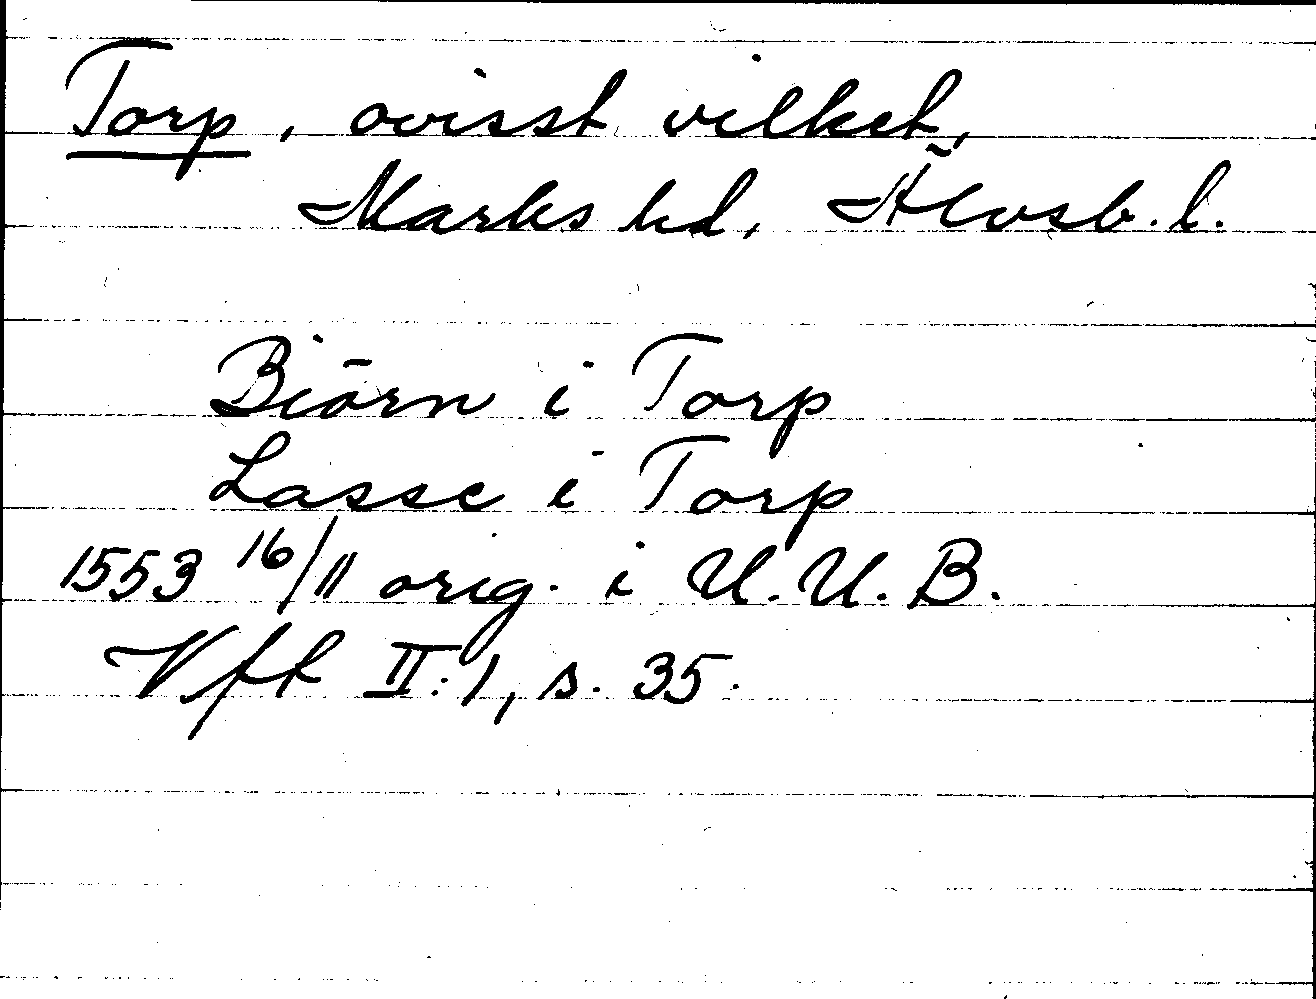 Torp, ovisst vilket,
Marks hd, Älvsb. l.
Biörn i Torp
Lasse i Torp
1553 16/11 orig. i U.U.B.
Vft II:1, s. 35.